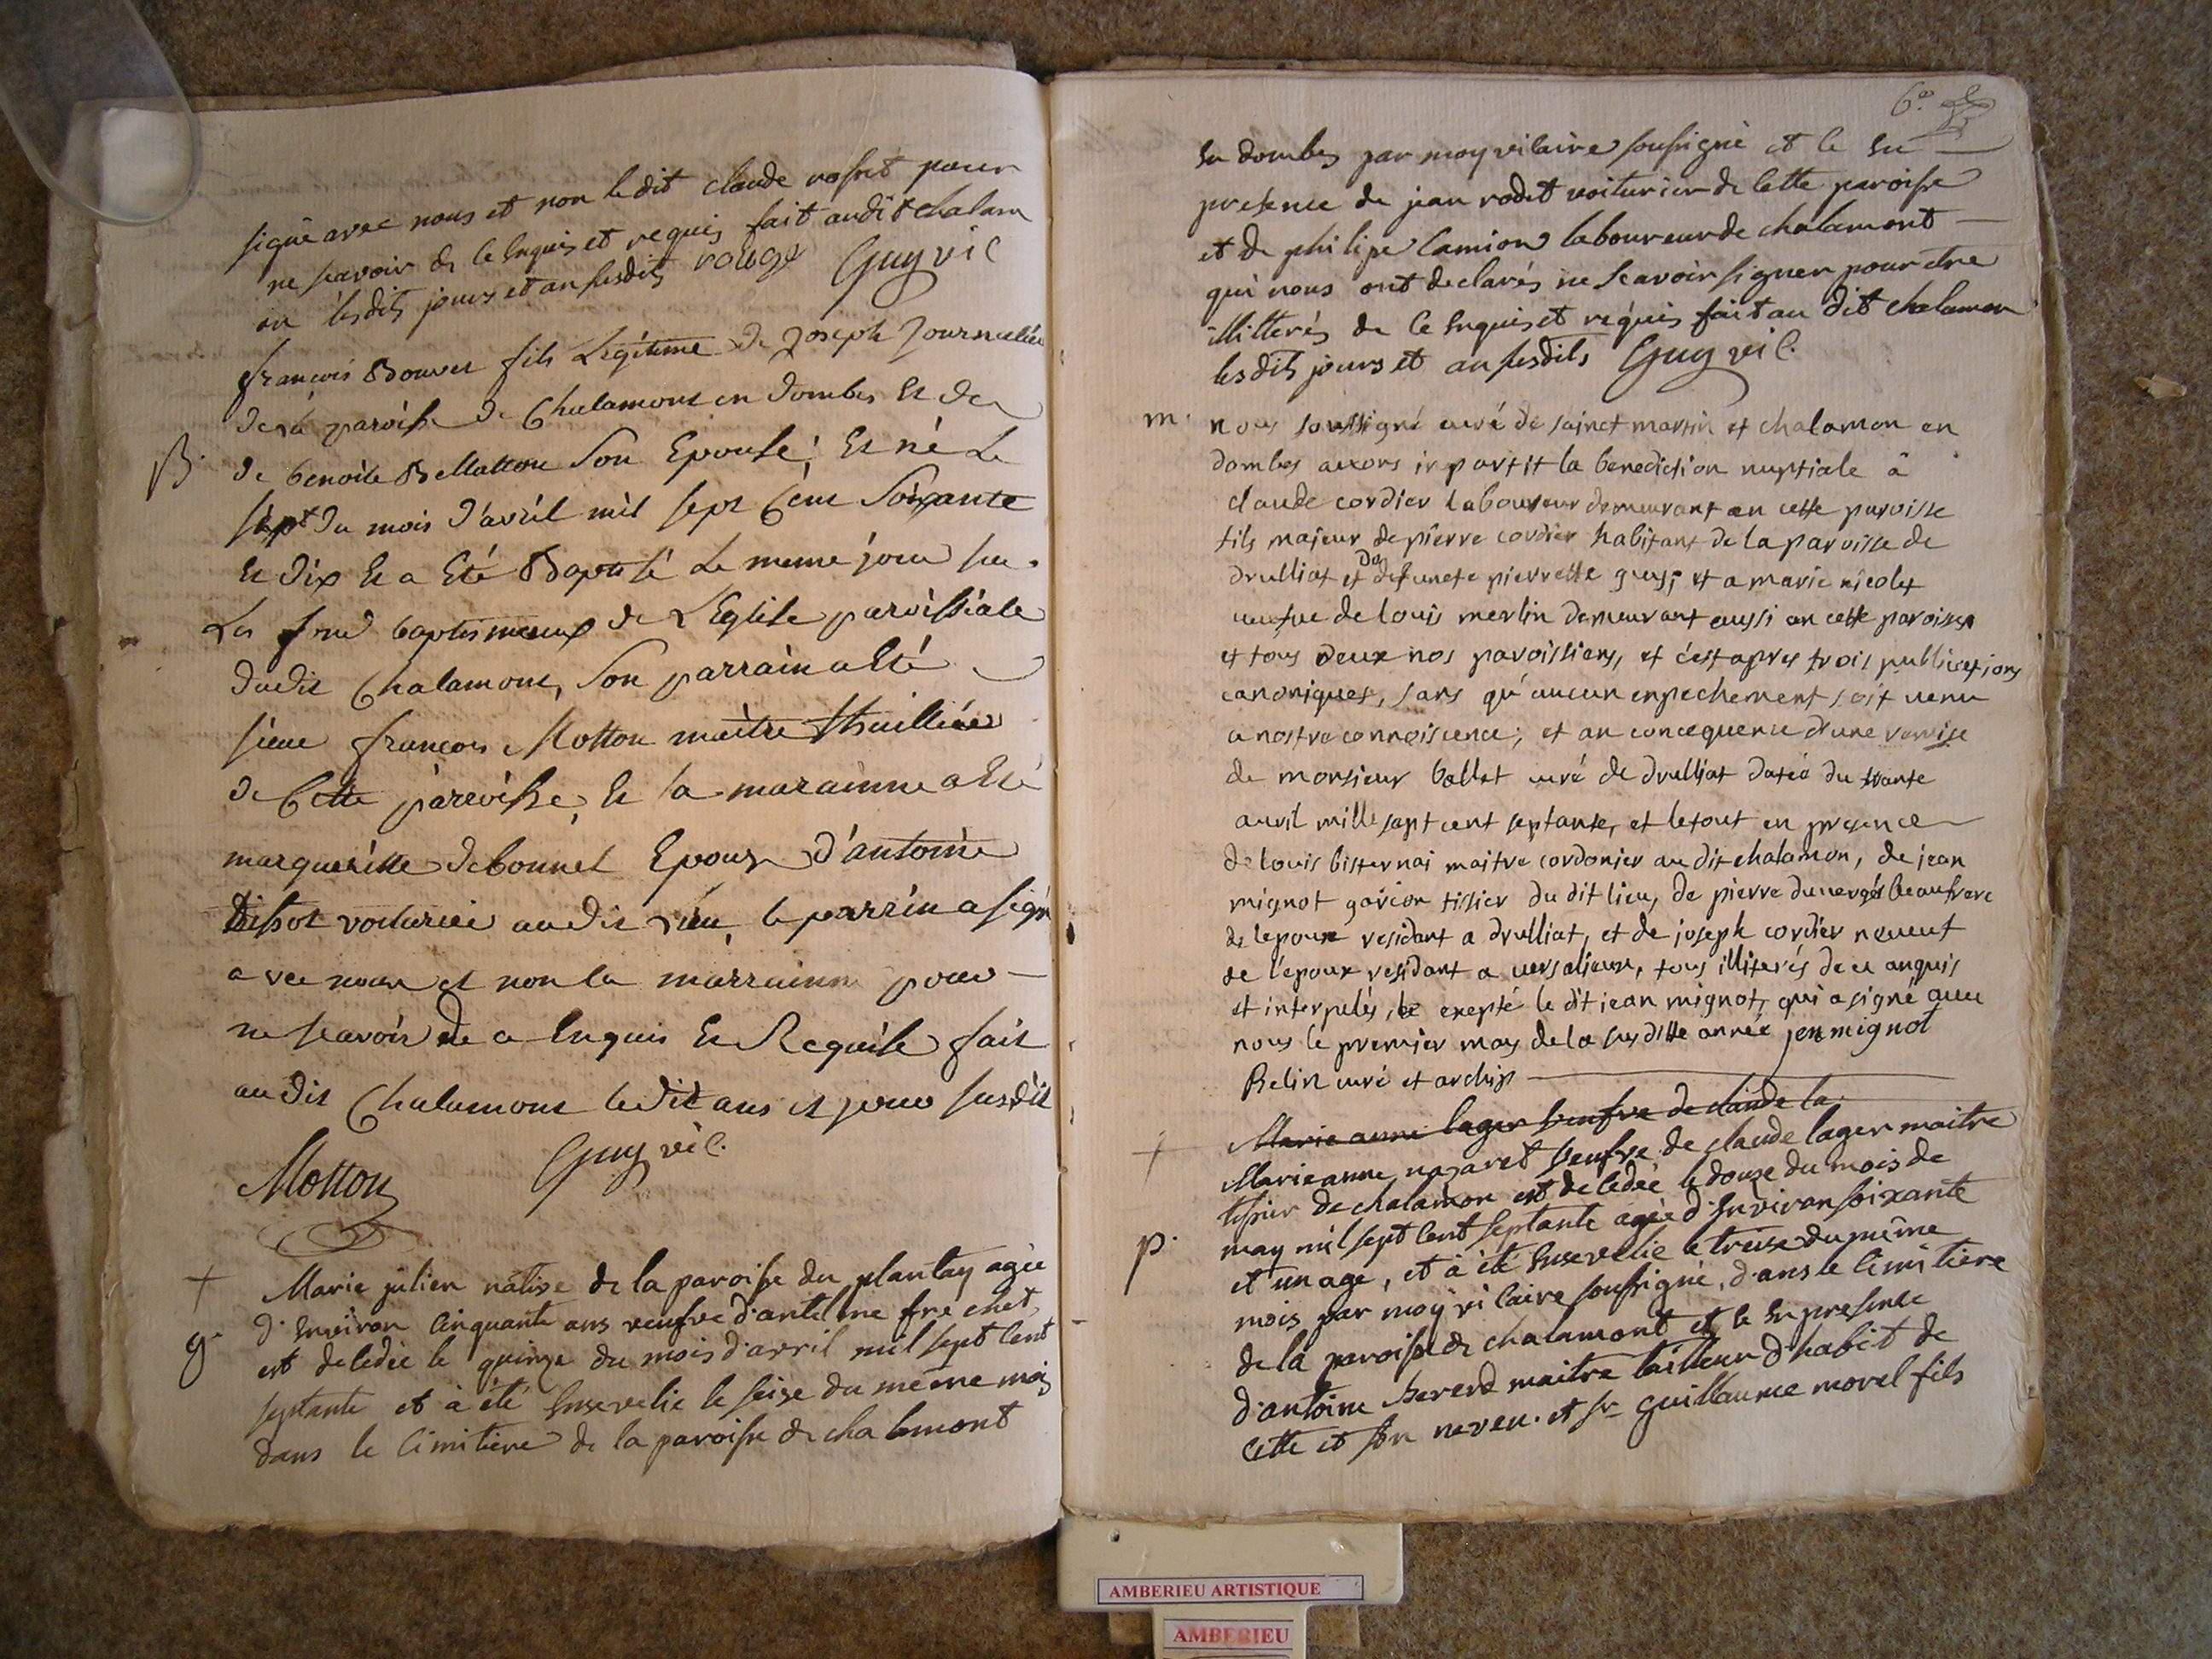 signé avec nous et non le dit claude rosset pour
ne scavoir de ce Enquis et requis fait audit chalam
on lesdits jours et an susdits rouge Guy vic
françois Bouvet fils Légitime de joseph journalier
de la paroisse de Chalamont en dombes Et de
B. de benoite Bellatton Son Epouse, Est né Le
sept du mois d'avril mil sept Cent Soixante
Et dix Et a Eté Baptisé Le meme jour sur
Les fond baptismaux de L'Eglise paroissiale
dudit Chalamont, Son parrain a Eté
sieur françois Motton maitre thuillier
de Cette parroisse, Et sa marainne a Eté
margueritte debonnet Epouse d'antoine
tissot voiturier audit lieu, le parrin a signé
avec nous et non la marrainne pour
ne scavoir de ce Enquis Et Requise fait
audit Chalamont ledit ans et jour susdit
Motton Guy vic.
+ Marie julien native de la paroisse du plantay agée
d'Environ Cinquante ans veufve d'antelme frechet
g. est decedée le quinze du mois d'avril mil sept Cent
septante et à été Ensevelie le seise du même mois
dans le Cimitiere de la paroisse de chalamont
6e
En dombes par moy vicaire soussigné et ce En
presence de jean rodet voiturier de Cette paroisse
et de philipe Camion laboureur de chalamont
qui nous ont declarés ne scavoir signer pour etre
illitterés de ce Enquis et requis fait au dit chalamon
lesdits jours et an susdits Guy vic.
m. nous soussigné curé de sainct martin et chalamon en
dombes avons inpartit la benediction nuptiale â
claude cordier laboureur demeurant en cette paroisse
fils majeur de pierre cordier habitant de la paroisse de
drulliat et de defuncte pierrette guy; et a marie nicolet
ueufue de louis merlin demeurant aussi en cette paroisse
et tous deux nos paroissiens, et c'est apres trois publications
canoniques, sans qu'aucun enpechement soit uenu
a nostre connoiscence; et an concequence d'une remise
de monsieur ballet curé de drulliat datée du trante
auril mille sapt cent septante, et le tout en presence
de louis bisternai maitre cordonier au dit chalamon, de jean
mignot garçon tissier du dit lieu, de pierre duuerger beaufrere
de lepoux residant a drulliat, et de joseph cordier neueut
de l'epoux residant a uersalieux, tous illiterés de ce anquis
et interpelés, exepté le dit jean mignot, qui a signé auec
nous le premier may de la susditte année jen mignot
Belin curé et archip
Marie anne lager veufve de claude la
+ Marie anne nazaret veufve de claude lager maitre
tissier de chalamon est decedée le douze du mois de
may mil sept Cent septante agée d'Environ soixante
p. et un age, et à été Ensevelie le treise du même
mois par moy vicaire soussigné, dans le Cimitiere
de la paroisse de chalamont et ce En presence
d'antoine maitre tailleur d'habit de
Cette et son neveu. et sr guillaume morel fils
AMBERIEU ARTISTIQUE
AMBERIEU